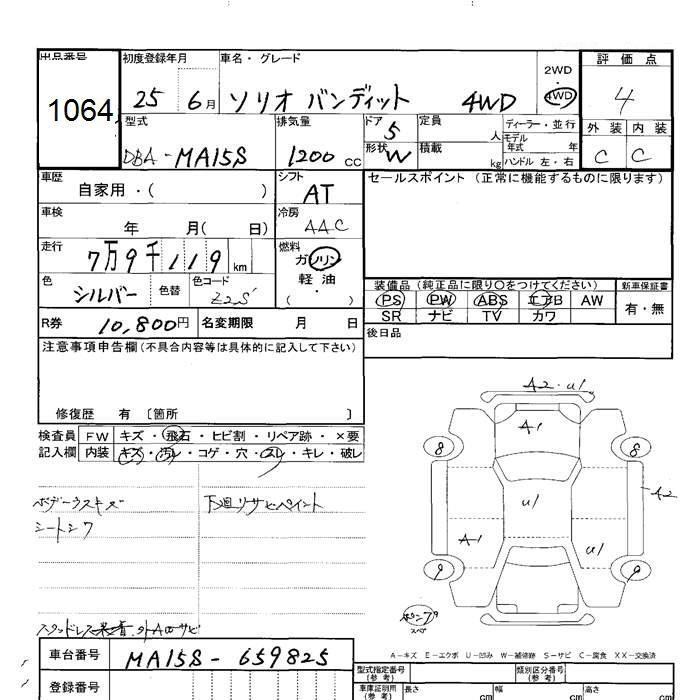 出品番号
1064
初度登録年月
25 6月
車名・グレード
ソリオ バンディット 4WD
2WD
4WD
評価点
4
外装 内装
C C
型式
DBA-MA15S
排気量
1200 cc
ドア
5
形状
W
定員
人
積載
kg
ディーラー・並行
モデル年式 年
ハンドル 左・右
車歴
自家用・( )
シフト
AT
セールスポイント (正常に機能するものに限ります)
車検
年 月( 日)
冷房
AAC
走行
7万9千119 km
燃料
ガソリン
軽油
( )
色
シルバー
色替
色コード
Z2S
装備品 (純正品に限り○をつけてください)
新車保証書
PS PW ABS エアB AW
有・無
SR ナビ TV カワ
R券
10,800円
名変期限 月 日
後日品
注意事項申告欄(不具合内容等は具体的に記入して下さい)
修復歴 有 〔箇所 〕
検査員
記入欄
FW キズ・飛石・ヒビ割・リペア跡・×要
内装 キズ・汚レ・コゲ・穴・スレ・キレ・破レ
ボデーウスキズ
シートシワ
下廻リサビペイント
A2・U1
A1
8
8
A2
U1
A1
U1
9
9
スペア
A-キズ E-エクボ U-凹み W-補修跡 S-サビ C-腐食 XX-交換済
車台番号
MA15S-659825
登録番号
型式指定番号
(参考)
類別区分番号
(参考)
車庫証明用
(参考)
長さ cm
幅 cm
高さ cm